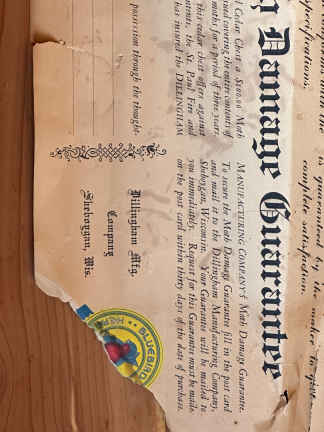 specifications.
is guaranteed by the maker to give
complete satisfaction.
Damage Guarantee
Cedar Chest, $100.00 Moth
covering the entire contents of
months for a period of three years
this cedar chest offers against
the St. Paul Fire and
has insured the DILLINGHAM
MANUFACTURING COMPANY'S Moth Damage Guarantee.
To secure the Moth Damage Guarantee fill in the post card
and mail it to the Dillingham Manufacturing Company,
Sheboygan, Wisconsin. Your Guarantee will be mailed to
you immediately. Request for this Guarantee must be made
on the post card within thirty days of the date of purchase.
possession through the thought-
Dillingham Mfg.
Company
Sheboygan, Wis.
BLUEBIRD